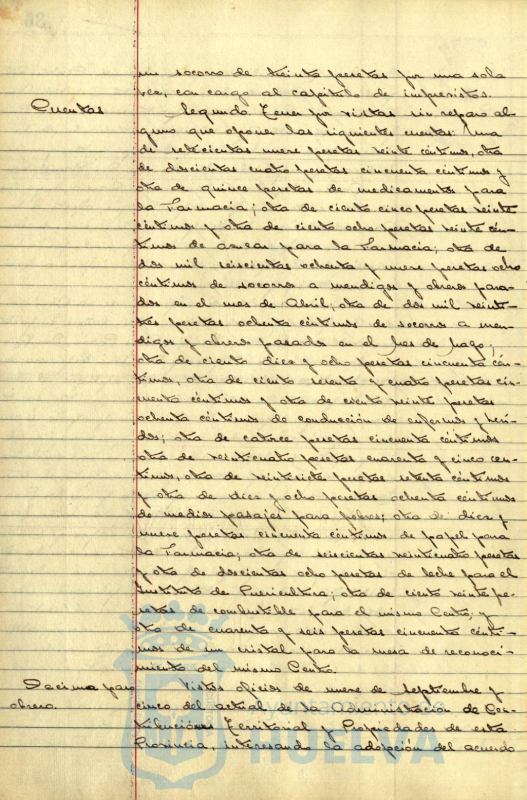 un socorro de treinta pesetas por una sola
vez, con cargo al capitulo de imprevistos.
Cuentas Segundo. Tener por vistas sin reparo al-
guno que oponer las siguientes cuentas: Una
de setecientas nueve pesetas veinte céntimos, otra
de doscientas cuatro pesetas cincuenta céntimos y
otra de quince pesetas de medicamentos para
la Farmacia; otra de ciento cinco pesetas veinte
céntimos y otra de ciento ocho pesetas veinte cén-
timos de azucar para la Farmacia; otra de
dos mil seiscientas ochenta y nueve pesetas ocho
céntimos de socorros a mendigos y obreros para-
dos en el mes de Abril; otra de dos mil veinti-
trés pesetas ochenta céntimos de socorros a men-
digos y obreros parados en el Mes de Mayo;
otra de ciento diez y ocho pesetas cincuenta cén-
timos, otra de ciento sesenta y cuatro pesetas cin-
cuenta céntimos y otra de ciento veinte pesetas
ochenta céntimos de conducción de enfermos y heri-
dos; otra de catorce pesetas cincuenta céntimos
otra de veinticuatro pesetas cuarenta y cinco cen-
timos, otra de veintisiete pesetas setenta céntimos
y otra de diez y ocho pesetas ochenta céntimos
de medios pasajes para pobres; otra de diez y
nueve pesetas cincuenta céntimos de papel para
la Farmacia; otra de seiscientas veinticuatro pesetas
y otra de doscientas ocho pesetas de leche para el
Instituto de Puericultura; otra de ciento veinte pe-
setas de combustible para el mismo Centro; y
otra de cuarenta y seis pesetas cincuenta cénti-
mos de un cristal para la mesa de reconoci-
miento del mismo Centro.
Decima paro Vistos oficios de nueve de Septiembre y
obrero. cinco del actual de la Administración de Con-
tribución Territorial y Propiedades de esta
Provincia, interesando la adopción del acuerdo
Ayuntamiento de
HUELVA